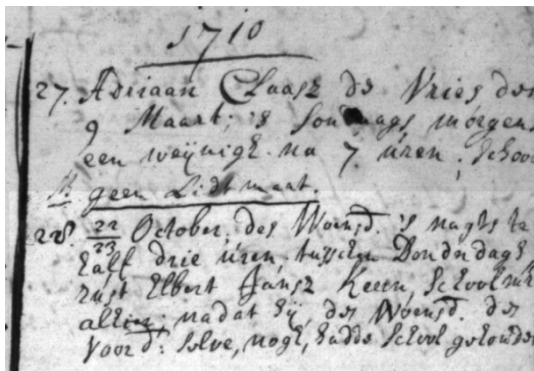 1710
27. Adriaan Claasz de Vries des
9 Maart; 's Sondaags morgens
een weijnigh na 7. uren; schoon
geen Lidtmaat.
28. 22/23 October, des Woensd. 's nagts te
half drie uren tusschen Donderdags
rust Elbert Jansz Keeen School
alhier; nadat hij, des Woensd. des
voord: selve, nogh, hadde School gehouden